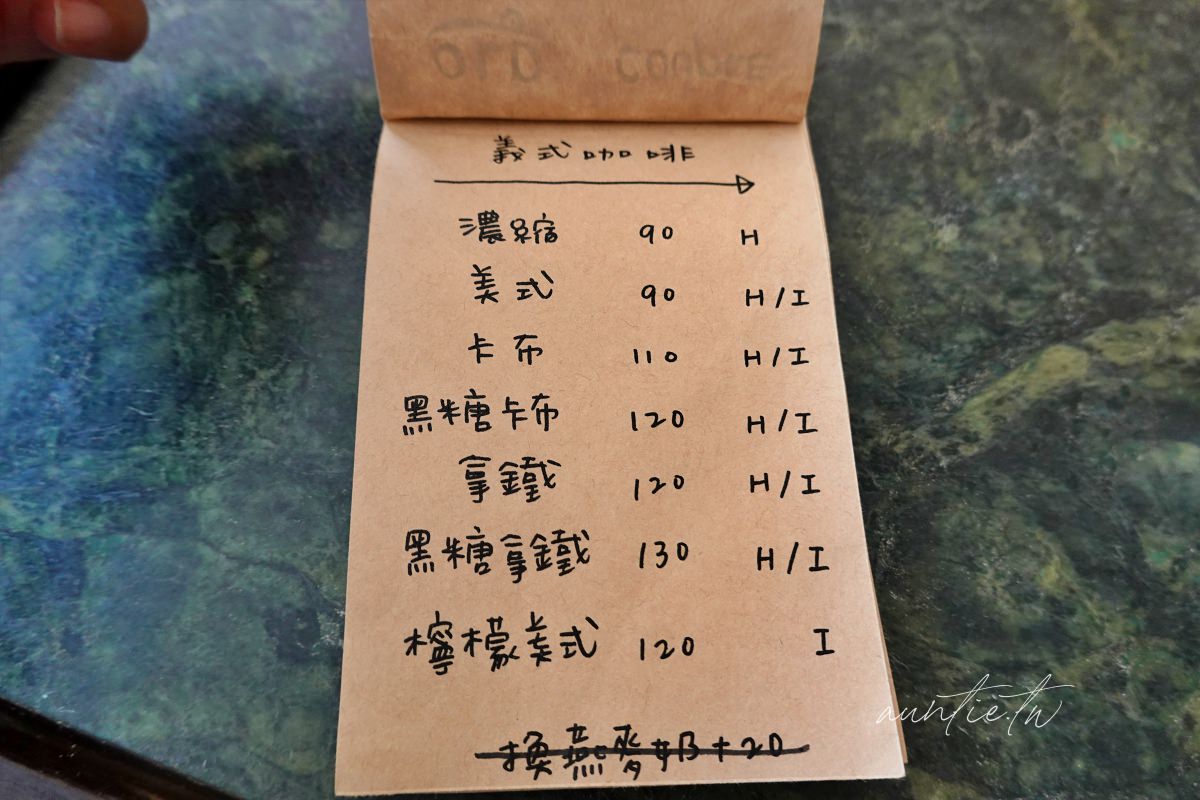 OLD COUPLE
義式咖啡
濃縮 90 H
美式 90 H/I
卡布 110 H/I
黑糖卡布 120 H/I
拿鐵 120 H/I
黑糖拿鐵 130 H/I
檸檬美式 120 I
換燕麥奶+20
auntie.tw